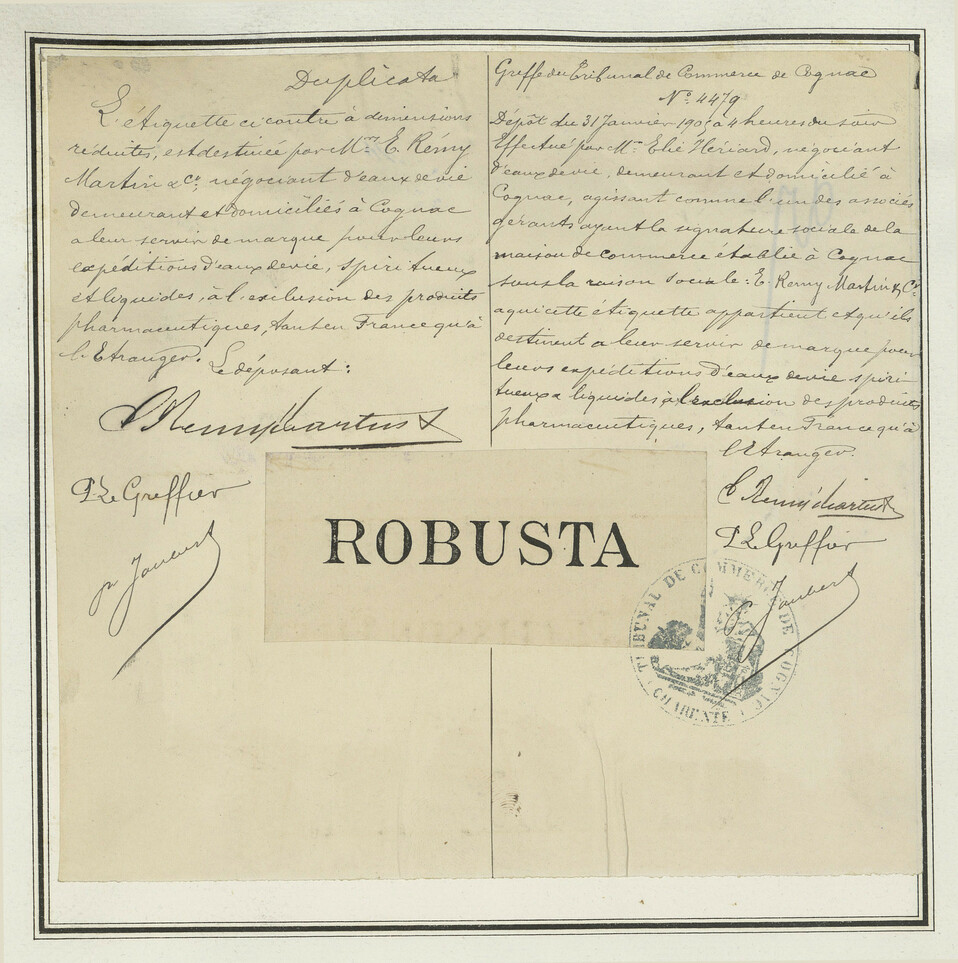 Duplicata
L'étiquette ci contre à dimensions
réduites, est destinée par M.rs E. Rémy
Martin & Co négociant d'eaux de vie
demeurant et domiciliés à Cognac
a leur servir de marque pour leurs
expéditions d'eaux de vie, spiritueux
et liquides, à l'exclusion des produits
pharmaceutiques, tant en France qu'à
l'Etranger. Le déposant :
E Remy Martin & Co
P. Le Greffier
Joubert
Greffe du Tribunal de Commerce de Cognac
No. 4479
Dépôt du 31 Janvier à 4 heures du soir
Effectué par Mr. Elie Hériard, négociant
d'eaux de vie, demeurant et domicilié à
Cognac, agissant comme l'un des associés
gérants ayant la signature sociale de la
maison de commerce établie à Cognac
sous la raison sociale : E. Remy Martin & Co
a qui cette étiquette appartient et qu'ils
destinent a leur servir de marque pour
leurs expéditions d'eaux de vie spiri
tueux & liquides à l'exclusion des produits
pharmaceutiques, tant en France qu'à
l'Etranger.
E Remy Martin & Co
P. Le Greffier
Joubert
ROBUSTA
TRIBUNAL DE COMMERCE DE COGNAC
CHARENTE